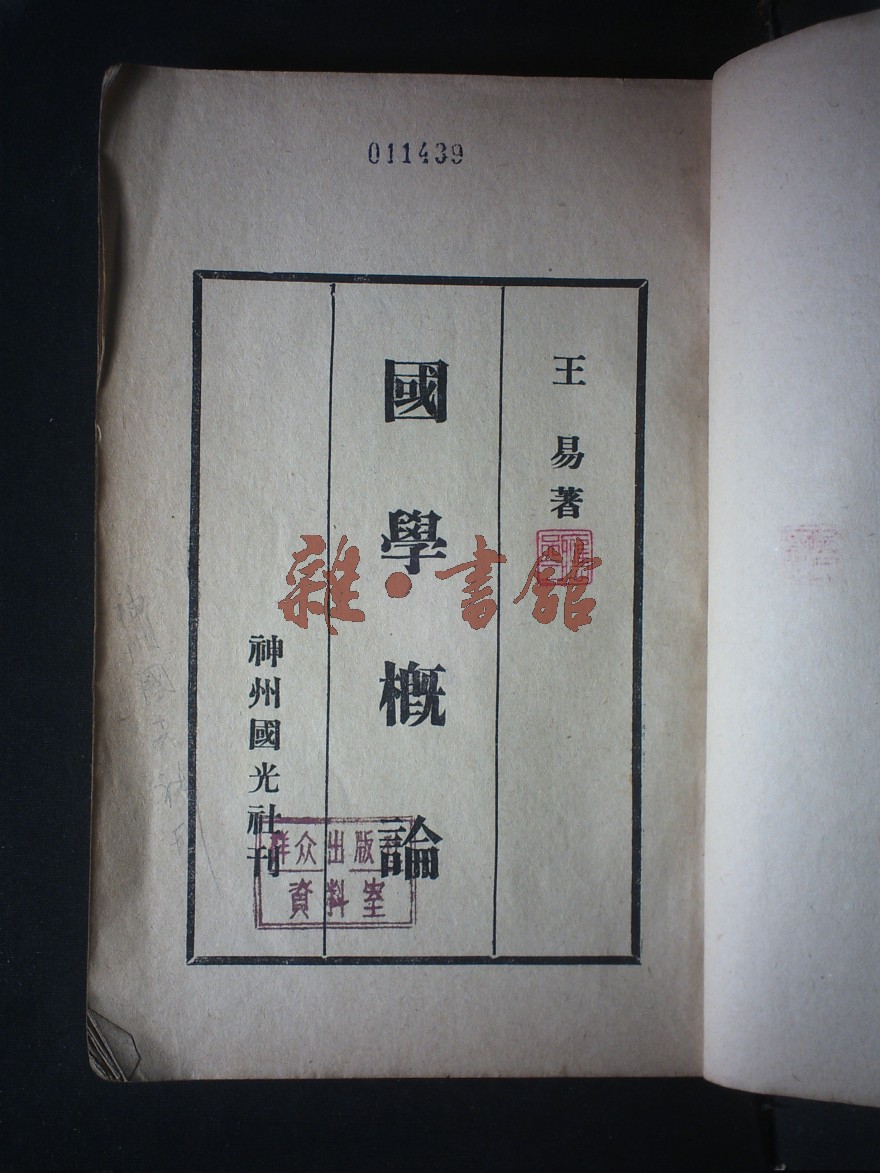 011439
王易著
國學概論
神州國光社刊
群众出版社
資料室
雜·書館